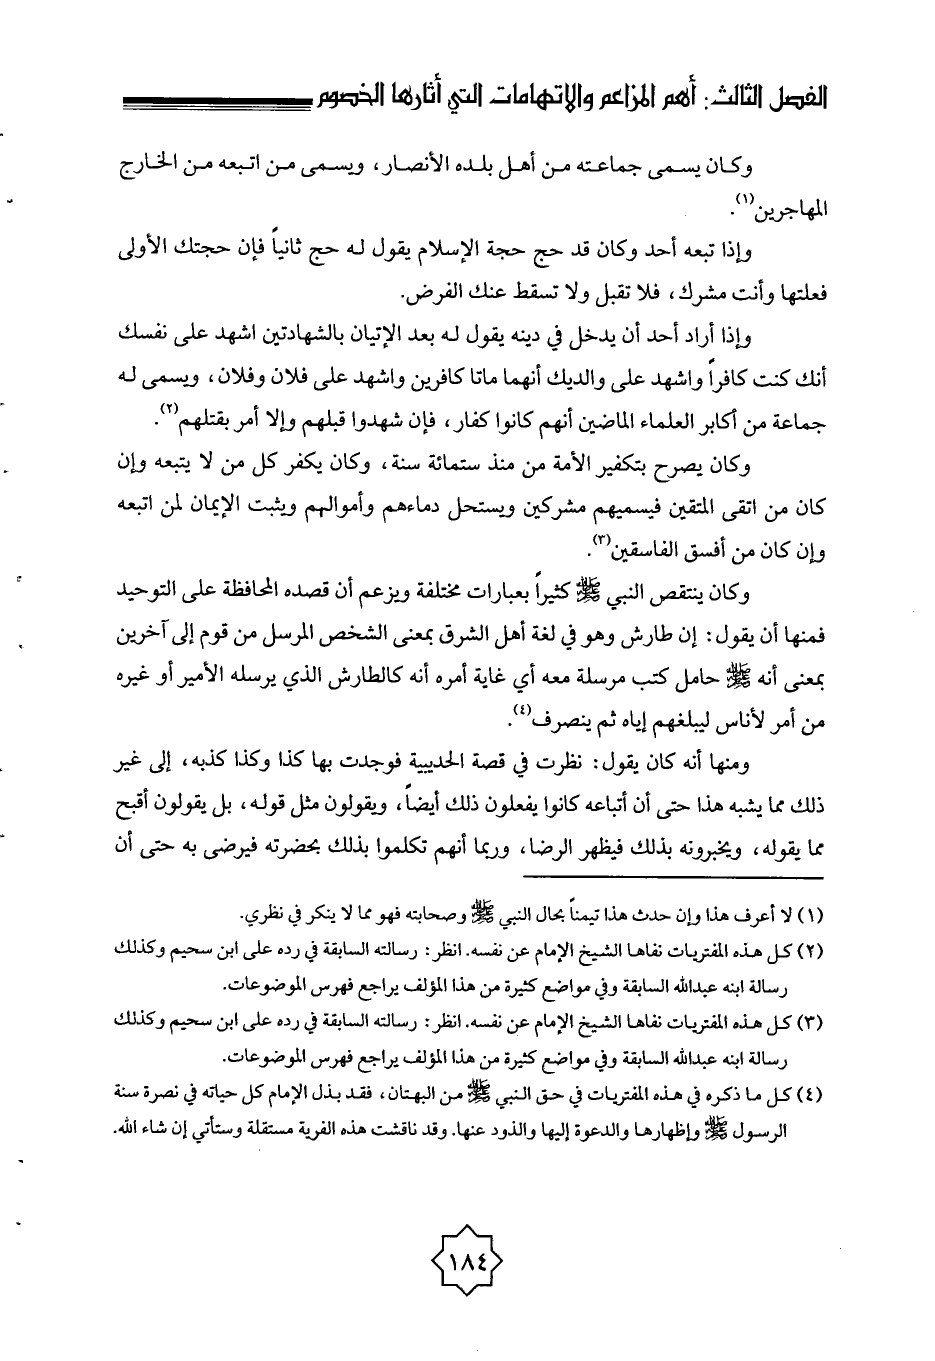 الفصل الثالث: أهم المزاعم والاتهامات التي أثارها الخصوم
وكان يسمى جماعته من أهل بلده الأنصار، ويسمى من اتبعه من الخارج
المهاجرين(١).
وإذا تبعه أحد وكان قد حج حجة الإسلام يقول له حج ثانياً فإن حجتك الأولى
فعلتها وأنت مشرك، فلا تقبل ولا تسقط عنك الفرض.
وإذا أراد أحد أن يدخل في دينه يقول له بعد الإتيان بالشهادتين اشهد على نفسك
أنك كنت كافراً واشهد على والديك أنهما ماتا كافرين واشهد على فلان وفلان، ويسمى له
جماعة من أكابر العلماء الماضين أنهم كانوا كفار، فإن شهدوا قبلهم وإلا أمر بقتلهم(٢).
وكان يصرح بتكفير الأمة من منذ ستمائة سنة، وكان يكفر كل من لا يتبعه وإن
كان من اتقى المتقين فيسميهم مشركين ويستحل دماءهم وأموالهم ويثبت الإيمان لمن اتبعه
وإن كان من أفسق الفاسقين(٣).
وكان ينتقص النبي ﷺ كثيراً بعبارات مختلفة ويزعم أن قصده المحافظة على التوحيد
فمنها أن يقول: إن طارش وهو في لغة أهل الشرق بمعنى الشخص المرسل من قوم إلى آخرين
بمعنى أنه ﷺ حامل كتب مرسلة معه أي غاية أمره أنه كالطارش الذي يرسله الأمير أو غيره
من أمر لأناس ليبلغهم إياه ثم ينصرف(٤).
ومنها أنه كان يقول: نظرت في قصة الحديبية فوجدت بها كذا وكذا كذبه، إلى غير
ذلك مما يشبه هذا حتى أن أتباعه كانوا يفعلون ذلك أيضاً، ويقولون مثل قوله، بل يقولون أقبح
مما يقوله، ويخبرونه بذلك فيظهر الرضا، وربما أنهم تكلموا بذلك بحضرته فيرضى به حتى أن
(١) لا أعرف هذا وإن حدث هذا تيمناً بحال النبي ﷺ وصحابته فهو مما لا ينكر في نظري.
(٢) كل هذه المفتريات نفاها الشيخ الإمام عن نفسه. انظر: رسالته السابقة في رده على ابن سحيم وكذلك
رسالة ابنه عبدالله السابقة وفي مواضع كثيرة من هذا المؤلف يراجع فهرس الموضوعات.
(٣) كل هذه المفتريات نفاها الشيخ الإمام عن نفسه. انظر: رسالته السابقة في رده على ابن سحيم وكذلك
رسالة ابنه عبدالله السابقة وفي مواضع كثيرة من هذا المؤلف يراجع فهرس الموضوعات.
(٤) كل ما ذكره في هذه المفتريات في حق النبي ﷺ من البهتان، فقد بذل الإمام كل حياته في نصرة سنة
الرسول ﷺ وإظهارها والدعوة إليها والذود عنها. وقد ناقشت هذه الفرية مستقلة وستأتي إن شاء الله.
١٨٤